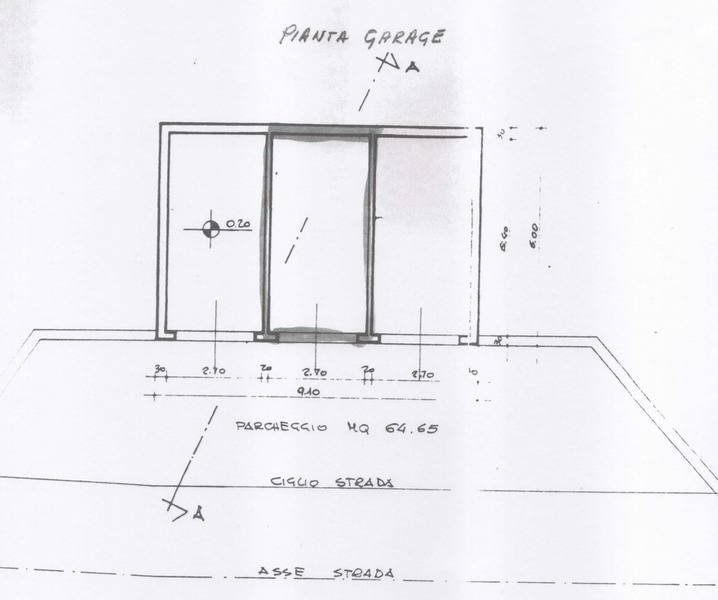 PIANTA GARAGE
A
0.20
30 2.70 20 2.70 20 2.70
9.10
PARCHEGGIO MQ 64.65
CIGLIO STRADA
A
ASSE STRADA